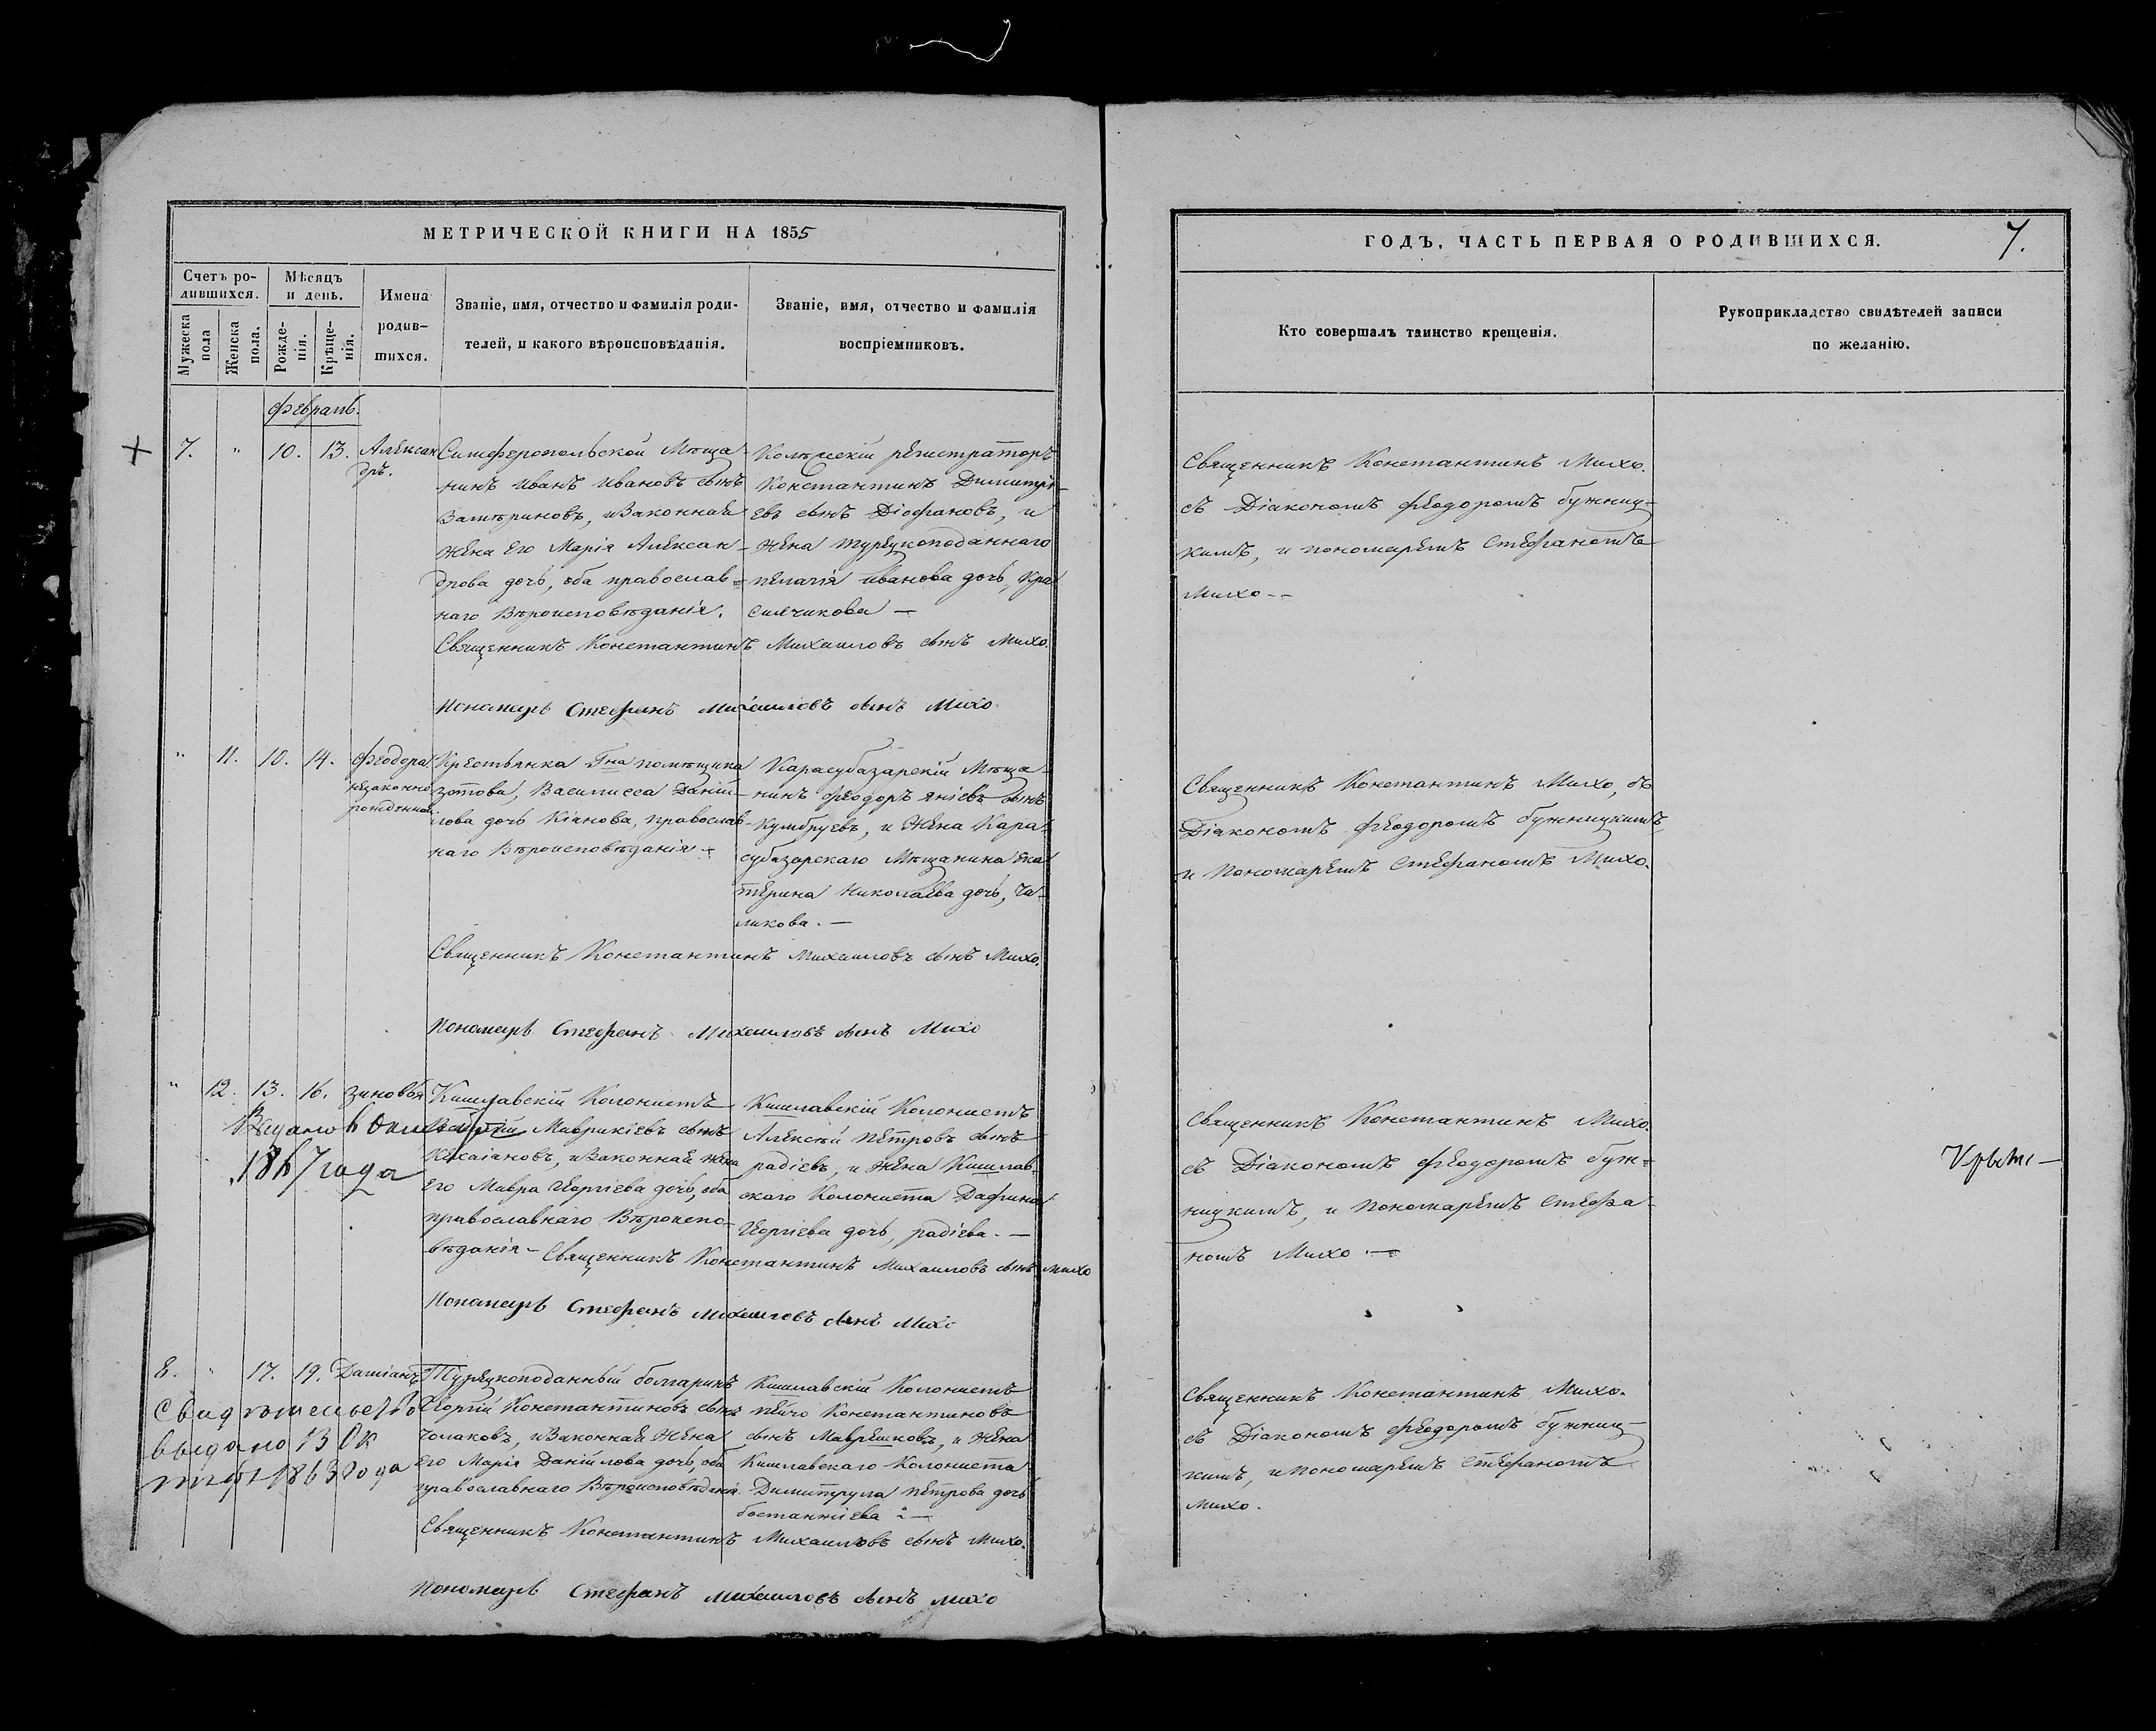 МЕТРИЧЕСКОЙ КНИГИ НА 1855
Счетъ ро-
дившихся.
Мѣсяцъ
и день.
Мужеска
пола
Женска
пола.
Рожде-
нія.
Крѣще-
нія.
Имена
родив-
шихся.
Званіе, имя, отчество и фамилія роди-
телей, и какого вѣроисповѣданія.
Званіе, имя, отчество и фамилія
воспріемниковъ.
Февраль.
7. " 10. 13.
Алексан
дръ.
Симферопольской Мѣща-
нинъ Иванъ Ивановъ сынъ
и Законная
жена Его Марія Алексан-
дрова дочь, оба православ=
наго Вѣроисповѣданія.
регистраторъ
Константинъ Димитрі-
евъ сынъ Діофановъ, и
жена турецкоподаннаго
пелагія иванова дочь, Кра
сильчикова —
Священникъ Константинъ Михаиловъ сынъ Михо.
Пономарь Стефанъ Михаиловъ сынъ Михо
" 11. 10. 14.
Феодора
незаконно
рожденная
Крестьянка Гна помѣщика
Василисса Даній-
лова дочь Кіанова, православ-
наго Вѣроисповѣданія
Карасубазарскій Мѣща-
нинъ Феодоръ Яніевъ сынъ
и Жена Кара-
субазарскаго Мѣщанина Ека
терина Николаева дочь, Ча-
ликова. —
Священникъ Константинъ Михаиловъ сынъ Михо.
Пономарь Стефанъ Михаиловъ сынъ Михо
" 12. 13. 16. Зиновья
1867 года
Кишлавскій Колонистъ
Маврикіевъ сынъ
и Законная жена
Его Мавра Георгіева дочь, оба
православнаго Вѣроиспо-
вѣданія –
Кишлавскій Колонистъ
Алексѣй Петровъ сынъ
радіевъ, и Жена Кишлав-
скаго Колониста Дафина
Георгіева дочь, радіева. —
Священникъ Константинъ Михаиловъ сынъ Михо
Пономарь Стефанъ Михаиловъ сынъ Михо
8. " 17. 19. Даміанъ
Свидѣтельство
выдано 13 Ок
1863 года
Турецкоподанный болгаринъ
Георгій Константиновъ сынъ
Чолаковъ, и Законная Жена
Его Марія Даніилова дочь, оба
православнаго Вѣроисповѣданія.
Кишлавскій Колонистъ
пейчо Константиновъ
сынъ Маврешковъ, и Жена
Кишлавскаго Колониста
Димитрула Петрова дочь
бостанжіева : —
Священникъ Константинъ Михаиловъ сынъ Михо.
Пономарь Стефанъ Михаиловъ сынъ Михо
ГОДЪ, ЧАСТЬ ПЕРВАЯ О РОДИВШИХСЯ.
7.
Кто совершалъ таинство крещенія.
Рукоприкладство свидѣтелей записи
по желанію.
Священникъ Константинъ Михо.
съ Діакономъ Феодоромъ бужниц-
кимъ, и пономаремъ Стефаномъ
Михо --
Священникъ Константинъ Михо, съ
Діакономъ Феодоромъ бужницкимъ,
и Пономаремъ Стефаномъ Михо.
Священникъ Константинъ Михо.
съ Діакономъ Феодоромъ буж=
ницкимъ, и Пономаремъ Стефа-
номъ Михо. —
Священникъ Константинъ Михо.
съ Діакономъ Феодоромъ бужниц-
кимъ, и пономаремъ Стефаномъ
Михо.